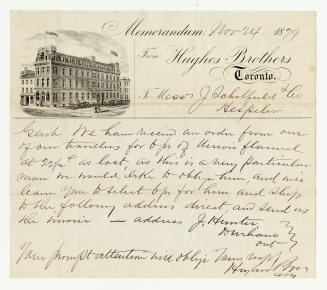 Memorandum, Nov 24 1879
From Hughes Brothers
Toronto.
To Messrs J Schofield & Co
Hespeler
Gents We have received an order from one
of our travellers for 6 ps of Union flannel
at 22½ as last, as this is a very particular
man we would like to oblige him, and will
leave you to select 6 ps for him and ship
to the following address direct, and send us
the invoice — address J. Hunter
Durham
Ont
Your prompt attention will oblige Yours resp
Hughes Bros